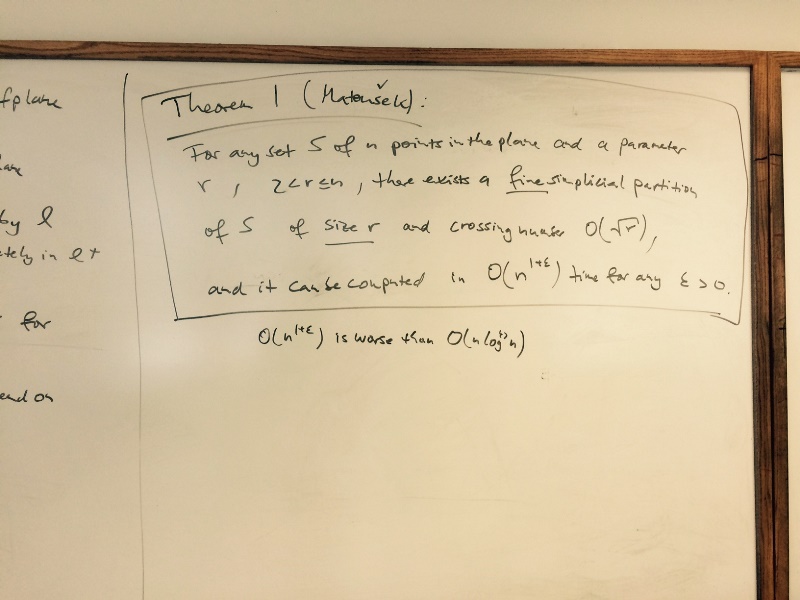 fplane
by l
etely in l+
for
end on
Theorem 1 (Matoušek):
For any set S of n points in the plane and a parameter
r, 2<r≤n, there exists a fine simplicial partition
of S of size r and crossing number O(√r),
and it can be computed in O(n^{1+ε}) time for any ε > 0.
O(n^{1+ε}) is worse than O(n log n)